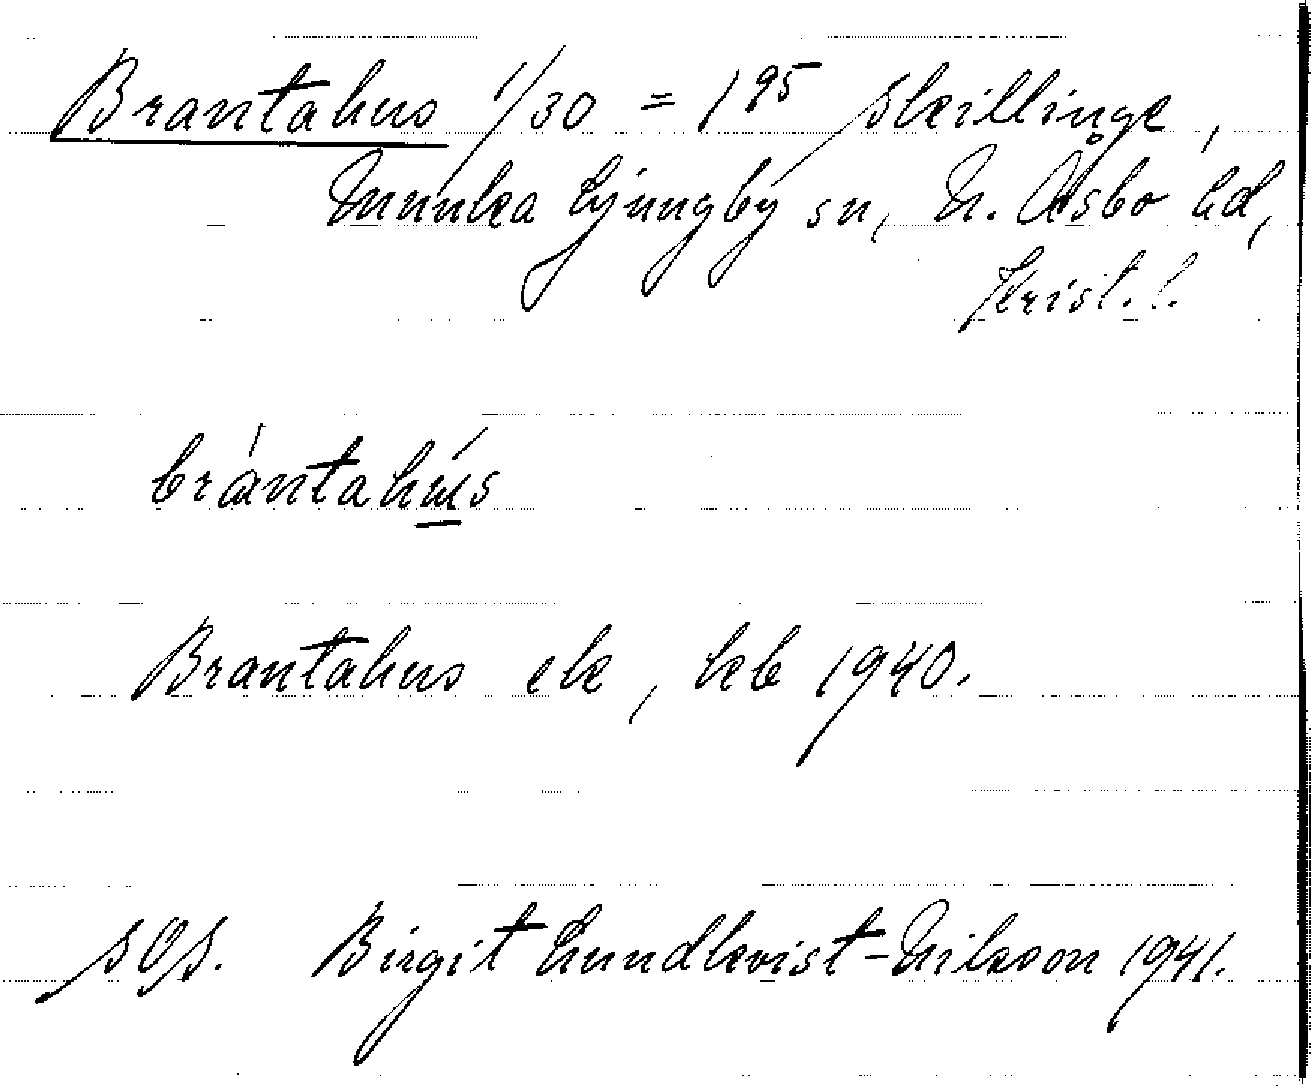 Brantahus 1/30 = 1⁹⁵ Skillinge,
Munka Ljungby sn, N. Åsbo hd,
Krist. l.
brántahús
Brantahus ek, kb 1940.
SOS. Birgit Lundkvist-Nilsson 1941.